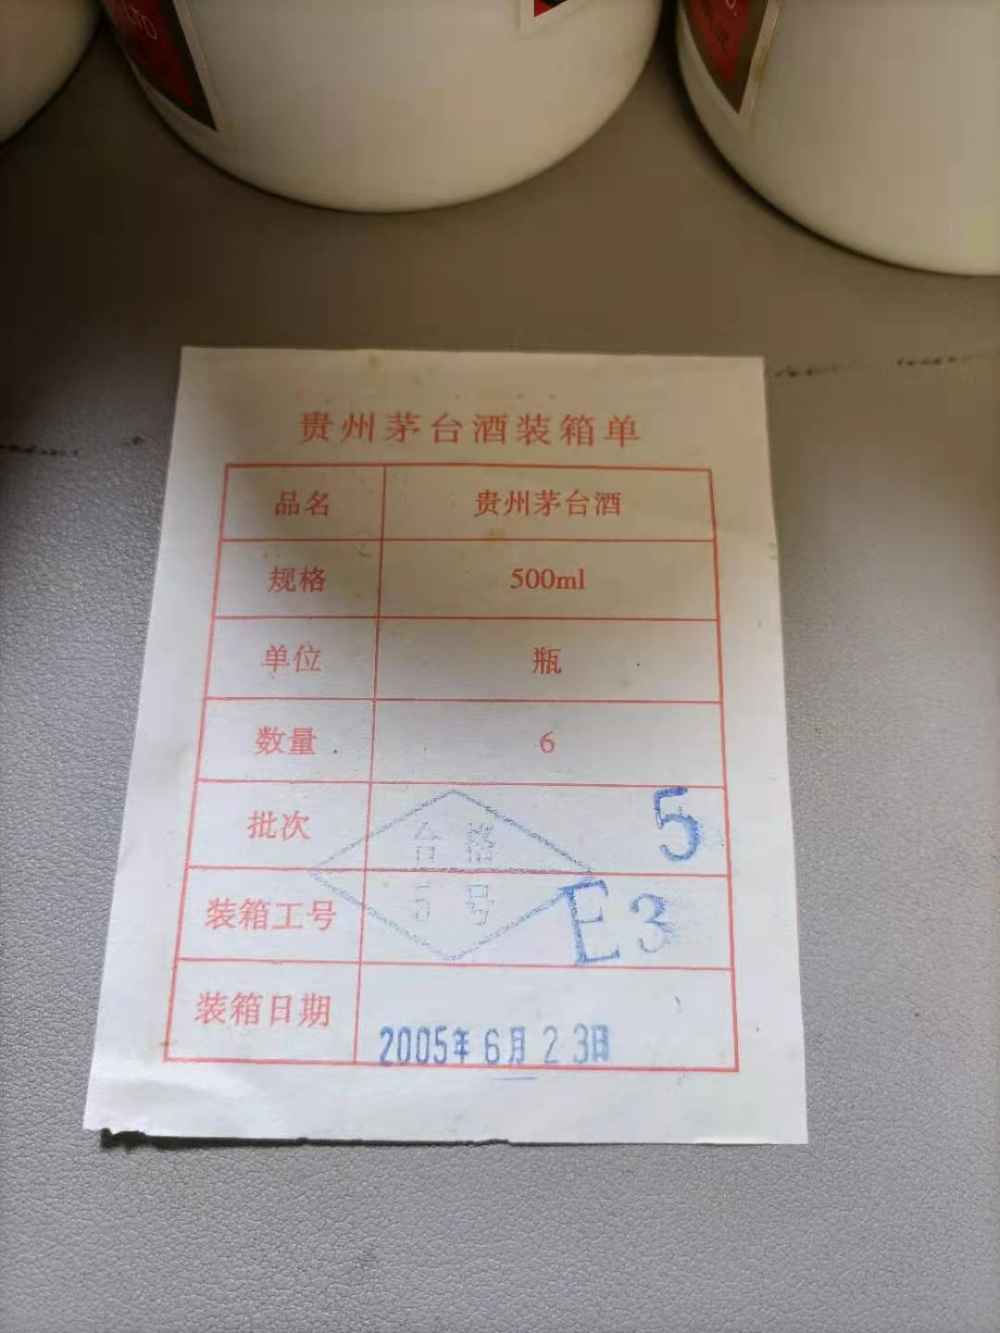 贵州茅台酒装箱单
品名 贵州茅台酒
规格 500ml
单位 瓶
数量 6
批次 5
合格
5号
装箱工号 E3
装箱日期 2005年6月23日